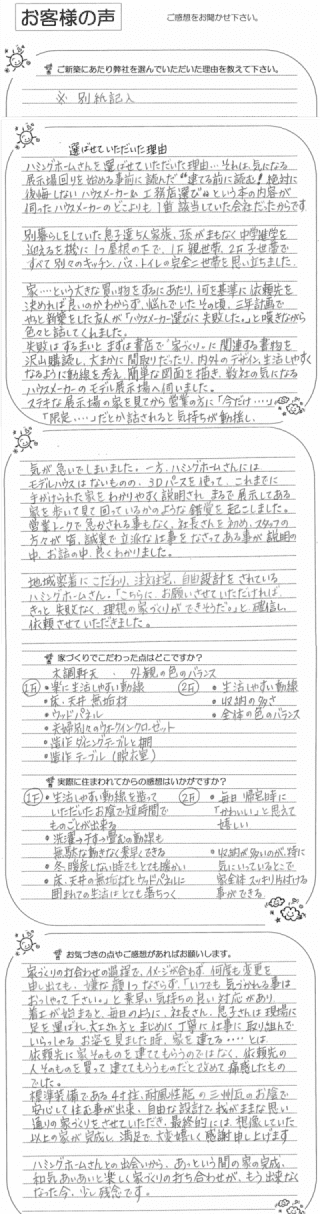 お客様の声
ご感想をお聞かせ下さい。
ご新築にあたり弊社を選んでいただいた理由を教えて下さい。
※ 別紙記入
選ばせていただいた理由
ハミングホームさんを選ばせていただいた理由…それは、気になる
展示場回りを始める事前に読んだ“建てる前に読む！絶対に
後悔しないハウスメーカー&工務店選び”という本の内容が
伺ったハウスメーカーのどこよりも1番該当していた会社だったからです
別暮らしをしていた息子達4人家族、孫がまもなく中学進学を
迎えるを機に1つ屋根の下で、1F親世帯、2F子世帯で
すべて別々のキッチン、バス、トイレの完全二世帯を思い立ちました。
家…という大きな買い物をするにあたり、何を基準に依頼先を
決めれば良いのかわからず、悩んでいたその頃、三年計画で
やっと新築をした友人が「ハウスメーカー選びに失敗した。」と嘆きながら
色々と話してくれました。
失敗はするまいとまずは書店で「家づくり」に関連する書物を
沢山購読し、大まかに間取りだったり、内外のデザイン、生活しやすく
なるように動線を考え、簡単な図面を描き、数社の気になる
ハウスメーカーのモデル展示場へ伺いました。
ステキな展示場の家を見てから営業の方に「今だけ…」
「限定……」だとか話されると気持ちが動揺し、
気が急いでしまいました。一方、ハミングホームさんには
モデルハウスはないものの、3Dパースを使って、これまでに
手がけられた家をわかりやすく説明され、まるで展示してある
家を歩いて見て回っているかのような錯覚を起こしました。
営業トークで急かされる事もなく、社長さんを初め、スタッフの
方々が皆、誠実で立派な仕事をなさってある事が説明の
中、お話の中、良くわかりました。
地域密着にこだわり、注文住宅、自由設計をされている
ハミングホームさん。「こちらに、お願いさせていただければ、
きっと失敗なく、理想の家づくりができそうだ。」と確信し、
依頼させていただきました。
家づくりでこだわった点はどこですか？
木調軒天 ・ 外観の色のバランス
1F ・楽に生活しやすい動線
・床、天井 無垢材
・ウッドパネル
・夫婦別々のウォークインクローゼット
・造作ダイニングテーブルと棚
・造作テーブル（脱衣室）
2F ・生活しやすい動線
・収納の多さ
・全体の色のバランス
実際に住まわれてからの感想はいかがですか？
1F ・生活しやすい動線を造って
いただいたお陰で短時間で
ものごとが出来る
・洗濯→干す→畳むの動線も
無駄な動きなく素早くできる
・冬、暖房しない時でもとても暖かい
・床、天井の無垢材とウッドパネルに
囲まれての生活はとても落ちつく
2F ・毎日帰宅時に
「かわいい」と思えて
嬉しい
・収納が多いのが、特に
気にいっているところで
家全体スッキリ片付ける
事ができる
お気づきの点やご感想があればお願いします。
家づくりのお打合わせの過程で、イメージが合わず、何度も変更を
申し出ても、嫌な顔1つなさらず、「いつでも気づかれる事は
おっしゃって下さい。」と素早い気持ちの良い対応があり
着工が始まると、毎日のように、社長さん、息子さんは現場に
足を運ばれ、大工され方とまじめに丁寧に仕事に取り組んで
いらっしゃるお姿を見ました時、家を建てる……とは
依頼先に家そのものを建ててもらうのではなく、依頼先の
人そのものを買って建ててもらうものだと改めて痛感したもの
でした。
標準装備である4寸柱、耐風性能の三州瓦のお陰で
安心して住む事が出来、自由な設計で我がままな思い
通りの家づくりをさせていただき、最終的には、想像していた
以上の家が完成し、満足で、大変嬉しく感謝申し上げます
ハミングホームさんとの出会いから、あっという間の家の完成、
和気あいあいと楽しく家づくりの打ち合わせが、もう出来なく
なった今、少し残念です。